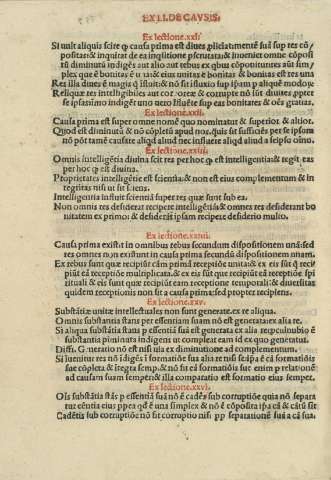 EX LI. DE CAVSIS.
Ex lectione.xxi.
Si uult aliquis scire ꝙ causa prima est diues
tū diminutū indigēs aut alio aut rebus ex qbus cōponituntes aūt sim/
plex que ē bonitas ē una & eius unitas ē bonitas & bonitas est res una
Res illa diues ē magis q̄ īfluit & nō fit īfluxio sup ipsam p aliquē modoȝ
Reliquæ res intelligibiles aut corporeæ & corruptæ nō sūt diuites per
se ipsas īmo indigēt uno uero īfluēte sup eas bonitates & oēs gratias.
Ex lectione.xxii.
Causa prima est super omne nomē quo nominatur & superior & altior.
Quod est diminutū & nō cōpletū apud nos, quis sit sufficiēs per se ipsam
nō pōt tamē causare aliqd aliud nec influere aliqd aliud a seipso
Ex lectione.xxiii.
Omnis intelligētia diuina scit res per hoc ꝙ est intelligentia: & regit eas
per hoc ꝙ est diuina.
Proprietates intelligētie est scientia: & non est eius complementum & in
tegritas nisi ut sit sciens.
Intelligentia influit scientiā super res quæ sunt sub ea.
Non omnis res desiderat recipere intelligētiā: & omnes res desiderant bo
nitatem ex primo: & desiderāt ipsam recipere desiderio multo.
Ex lectione.xxiiii.
Causa prima existit in omnibus rebus secundum dispositionem unā: sed
res omnes non existunt in causa prima secundū dispositionem unam.
Ex rebus sunt quæ recipiūt cām primā receptiōe unitā: & ex eis sūt q̄ reci/
piūt eā receptiōe multiplicata. & ex eis sūt que recipiūt eā receptiōe spi
rituali & ex eis sunt quæ recipiūt eam receptione temporali: & diuersitas
quidem receptionis non fit a causa prima: sed propter recipiens.
Ex lectione.xxv.
Substātiæ unitæ intellectuales non sunt generatæ ex re aliqua.
Omnis substantia stans per essentiam suam nō est generata ex alia re.
Si aliqua substātia stans p essentiā suā est generata ex alia
bstantia diminuta indigens ut compleat eam id ex quo generatur.
Diffi. Generatio nō est nisi uia ex diminutione ad complementum.
Si inuenitur res nō īdigēs ī formatiōe sua alia re nisi se ipsa ē cā formatiōis
suæ cōpleta & ītegra semp. & nō fit cā formatiōis suæ
ad causam suam semper: & illa comparatio est formatio eius semper.
Ex lectione.xxvi.
Ois substātia stās p essentiā suā nō ē cadēs sub corruptiōe quia nō separa
tur
Cadētis sub corruptiōe nō fit corruptio nisi pp separationē suā a cā sua.